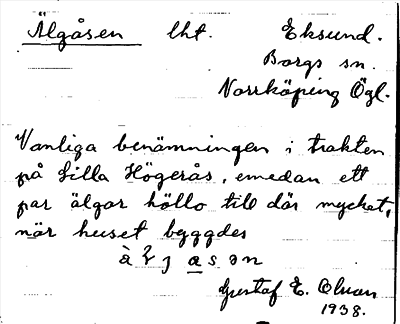 Älgåsen lht. Eksund.
Borgs sn.
Norrköping Ögl.
Vanliga benämningen i trakten
på Lilla Högerås, emedan ett
par älgar höllo till där mycket,
när huset byggdes
Gustaf E. Olsson
1938.